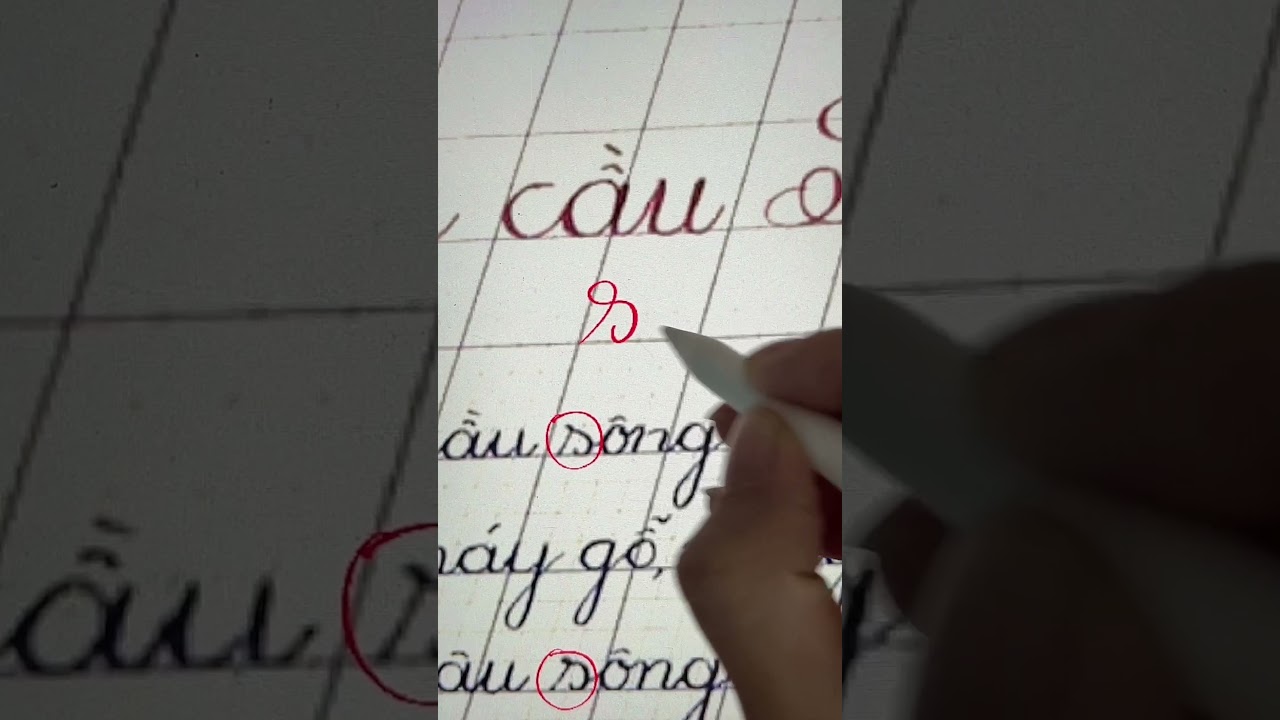 cầu
s
ầu sông
máy gỗ,
âu sông